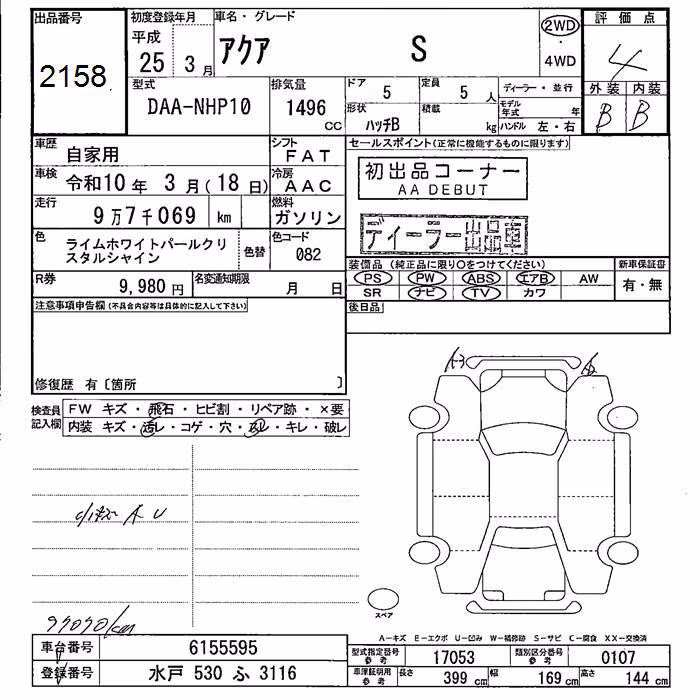 出品番号
2158
初度登録年月
平成
25 3月
車名・グレード
アクア S
2WD
・
4WD
評価点
4
外装 内装
B B
型式
DAA-NHP10
排気量
1496
CC
ドア 5
定員 5 人
形状 ハッチB
積載 kg
ディーラー・並行
モデル年式 年
ハンドル 左・右
車歴 自家用
シフト FAT
車検 令和10年 3月(18日)
冷房 AAC
走行 9万7千069 km
燃料 ガソリン
色 ライムホワイトパールクリスタルシャイン
色替
色コード 082
R券 9,980円
名変通知期限 月 日
セールスポイント(正常に機能するものに限ります)
初出品コーナー
AA DEBUT
ディーラー出品車
装備品(純正品に限り○をつけてください)
新車保証書
PS PW ABS エアB AW
SR ナビ TV カワ
有・無
後日品
注意事項申告欄(不具合内容等は具体的に記入して下さい)
修復歴 有〔箇所 〕
検査員記入欄
FW キズ・飛石・ヒビ割・リペア跡・×要
内装 キズ・汚レ・コゲ・穴・スレ・キレ・破レ
A U
97070km
スペア
A-キズ E-エクボ U-凹み W-補修跡 S-サビ C-腐食 XX-交換済
車台番号 6155595
登録番号 水戸 530 ふ 3116
型式指定番号 参考 17053
類別区分番号 参考 0107
車庫証明用 参考
長さ 399cm
幅 169cm
高さ 144cm